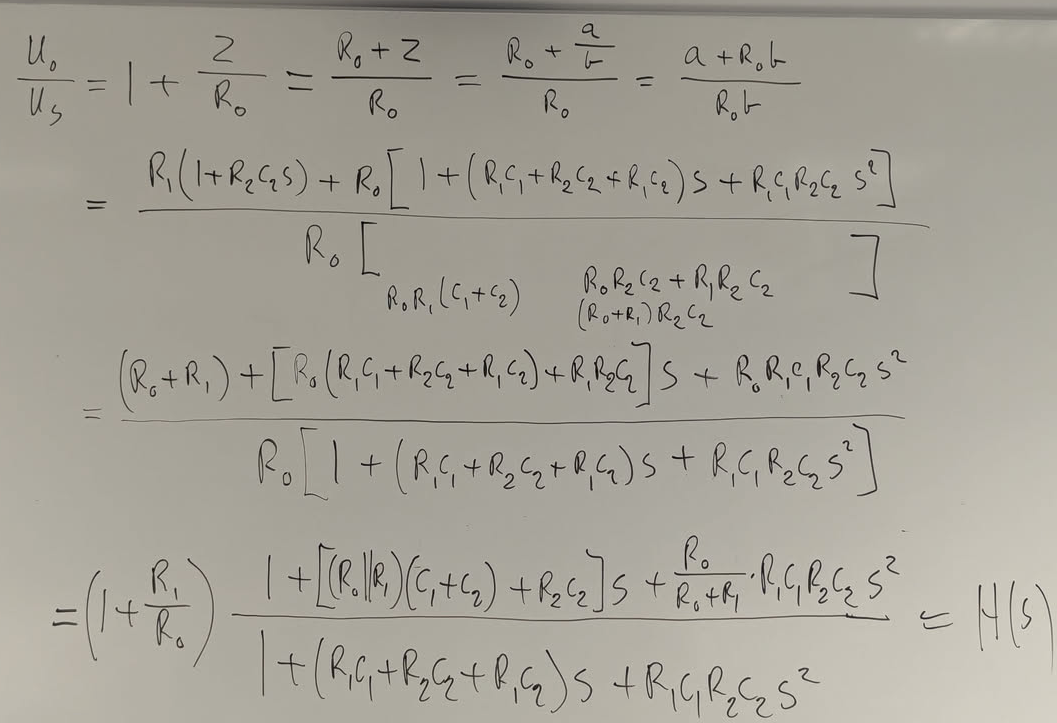 U₀/U_S = 1 + Z/R₀ = (R₀ + Z)/R₀ = (R₀ + a/b)/R₀ = (a + R₀b)/(R₀b)
= (R₁(1+R₂C₂s) + R₀[1+(R₁C₁+R₂C₂+R₁C₂)s + R₁C₁R₂C₂ s²])/(R₀[ ])
R₀R₁(C₁+C₂) R₀R₂C₂ + R₁R₂C₂
(R₀+R₁)R₂C₂
= ((R₀+R₁) + [R₀(R₁C₁+R₂C₂+R₁C₂)+R₁R₂C₂]s + R₀R₁C₁R₂C₂s²)/(R₀[1 + (R₁C₁+R₂C₂+R₁C₂)s + R₁C₁R₂C₂s²])
= (1+R₁/R₀) (1+[(R₀||R₁)(C₁+C₂)+R₂C₂]s + R₀/(R₀+R₁)·R₁C₁R₂C₂s²)/(1+(R₁C₁+R₂C₂+R₁C₂)s + R₁C₁R₂C₂s²) = H(s)